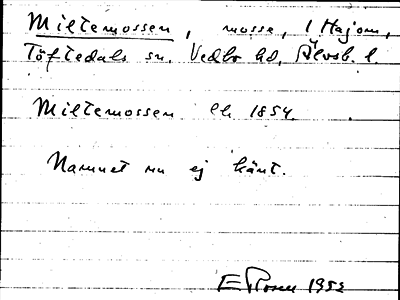 Miltemossen, mosse, i Hajom,
Töftedals sn, Vedbo hd, Älvsb. l.
Miltemossen lk 1854.
Namnet nu ej känt.
E Rosen 1952